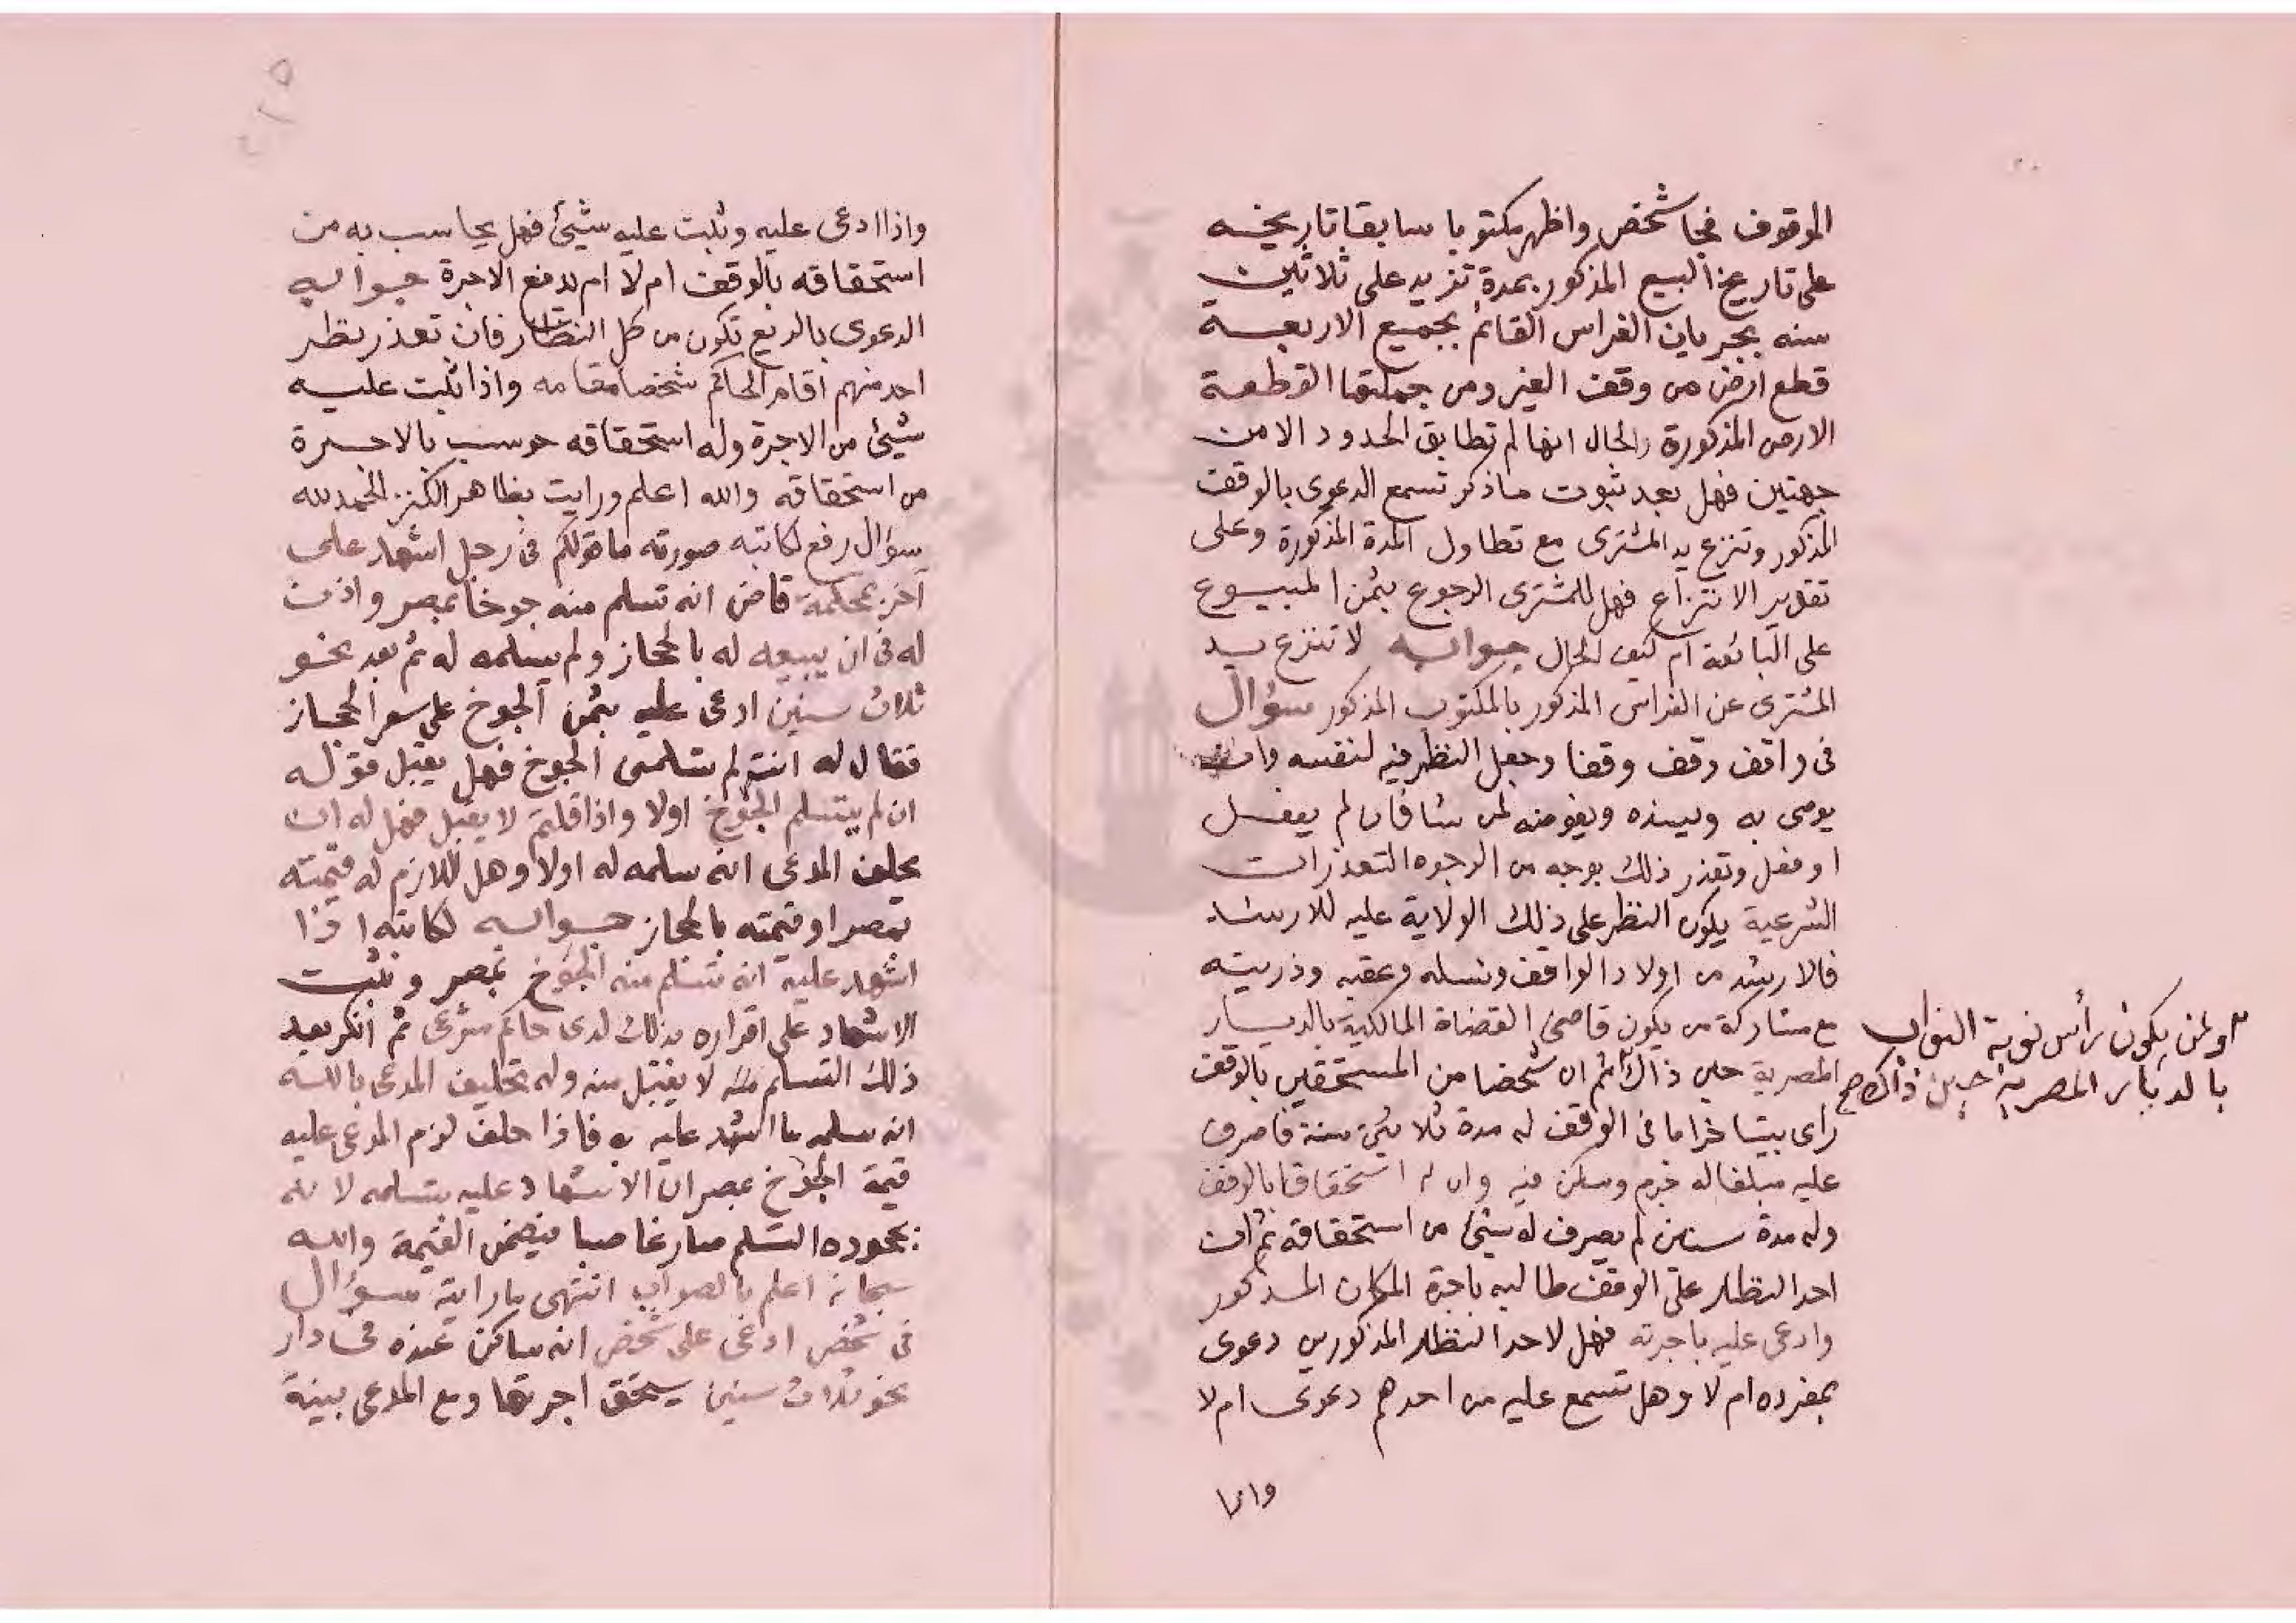 الموقوف فجا شخص واظهر مكتوبا سابقا تاريخه
على تاريخ البيع المذكور بمدة تزيد على ثلاثين
سنه بجريان الفراس القائم بجميع الاربعة
قطع ارض من وقف الغير ومن جملتها القطعة
الارض المذكورة والحال انها لم تطابق الحدود الا من
جهتين فهل بعد ثبوت ماذكر تسمع الدعوى بالوقف
المذكور وتنزع يد المشترى مع تطاول المدة المذكورة وعلى
تقدير الانتزاع فهل للمشترى الرجوع بثمن المبيوع
على البائعة ام كيف الحال جوابه لا تنزع يد
المشترى عن الفراس المذكور بالمكتوب المذكور سؤال
فى واقف وقف وقفا وجعل النظر فيه لنفسه وان
يوصى به ويسنده ويفوضه لمن شا فان لم يفعل
او فعل وتعذر ذلك بوجه من الوجوه التعذرات
الشرعية يكون النظر على ذلك الولاية عليه للارشد
فالارشد من اولاد الواقف ونسله وعقبه وذريته
مع مشاركة من يكون قاضى القضاة المالكية بالديار
المصرية حين ذاك ثم ان شخصا من المستحقين بالوقف
راى بيتا خرابا فى الوقف له مدة ثلاثين سنة فاصرف
عليه مبلغا له جرم وسكن فيه وان له استحقاقا بالوقف
وله مدة سنين لم يصرف له شيئ من استحقاقه ثم ان
احد النظار على الوقف طالبه باجرة المكان المذكور
وادعى عليه باجرته فهل لاحد النظار المذكورين دعوى
بمفرده ام لا وهل تسمع عليه من احدهم دعوى ام لا
واذا
او لمن يكون رأس نوبة النواب
بالديار المصرية حين ذاك صح
٢١٥
واذا ادعى عليه وثبت عليه شيئ فهل يحاسب به من
استحقاقه بالوقف ام لا ام يدفع الاجرة جوابه
الدعوى بالريع تكون من كل النظار فان تعذر نظر
احد منهم اقام الحاكم شخصا مقامه واذا ثبت عليه
شيئ من الاجرة وله استحقاقه حوسب بالاجرة
من استحقاقه والله اعلم ورايت بظاهر الكنز الحمد لله
سؤال رفع لكاتبه صورته ما قولكم فى رجل اشهد على
آخر بمحكمة قاض انه تسلم منه جوخا بمصر واذن
له فى ان يبيعه له بالحجاز ولم يسلمه له ثم بعد نحو
ثلاث سنين ادعى عليه بثمن الجوخ على سعر الحجاز
فقال له انت لم تسلمنى الجوخ فهل يقبل قوله
ان لم يتسلم الجوخ اولا واذا قلتم لا يقبل فهل له ان
يحلف المدعى انه سلمه له اولا وهل اللازم له قيمته
بمصر او قيمته بالحجاز جوابه لكاتبه اذا
اشهد عليه انه تسلم منه الجوخ بمصر وثبت
الاشهاد على اقراره بذلك لدى حاكم شرعى ثم انكر بعد
ذلك التسلم منه لا يقبل منه وله تحليف المدعى بالله
انه سلمه ما اشهد عليه به فاذا حلف لزم المدعى عليه
قيمة الجوخ بمصر ان الاشهاد عليه بتسلمه لانه
بجحوده التسلم صار غاصبا فيضمن القيمة والله
سبحانه اعلم بالصواب انتهى ما رايته سؤال
فى شخص ادعى على شخص انه ساكن عنده فى دار
نحو ثلاث سنين يستحق اجرتها ومع المدعى بينة